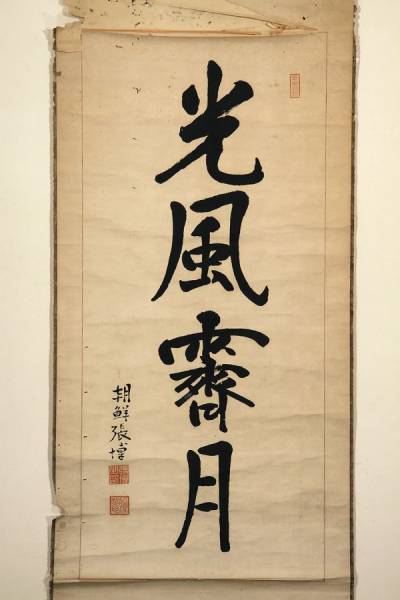 光風霽月
朝鮮張博